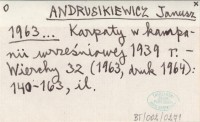 ANDRUSIKIEWICZ Janusz
1963... Karpaty w kampa-
nii wrześniowej 1939 r. -
Wierchy 32 (1963, druk 1964):
140-163, il.
BT/002/0271